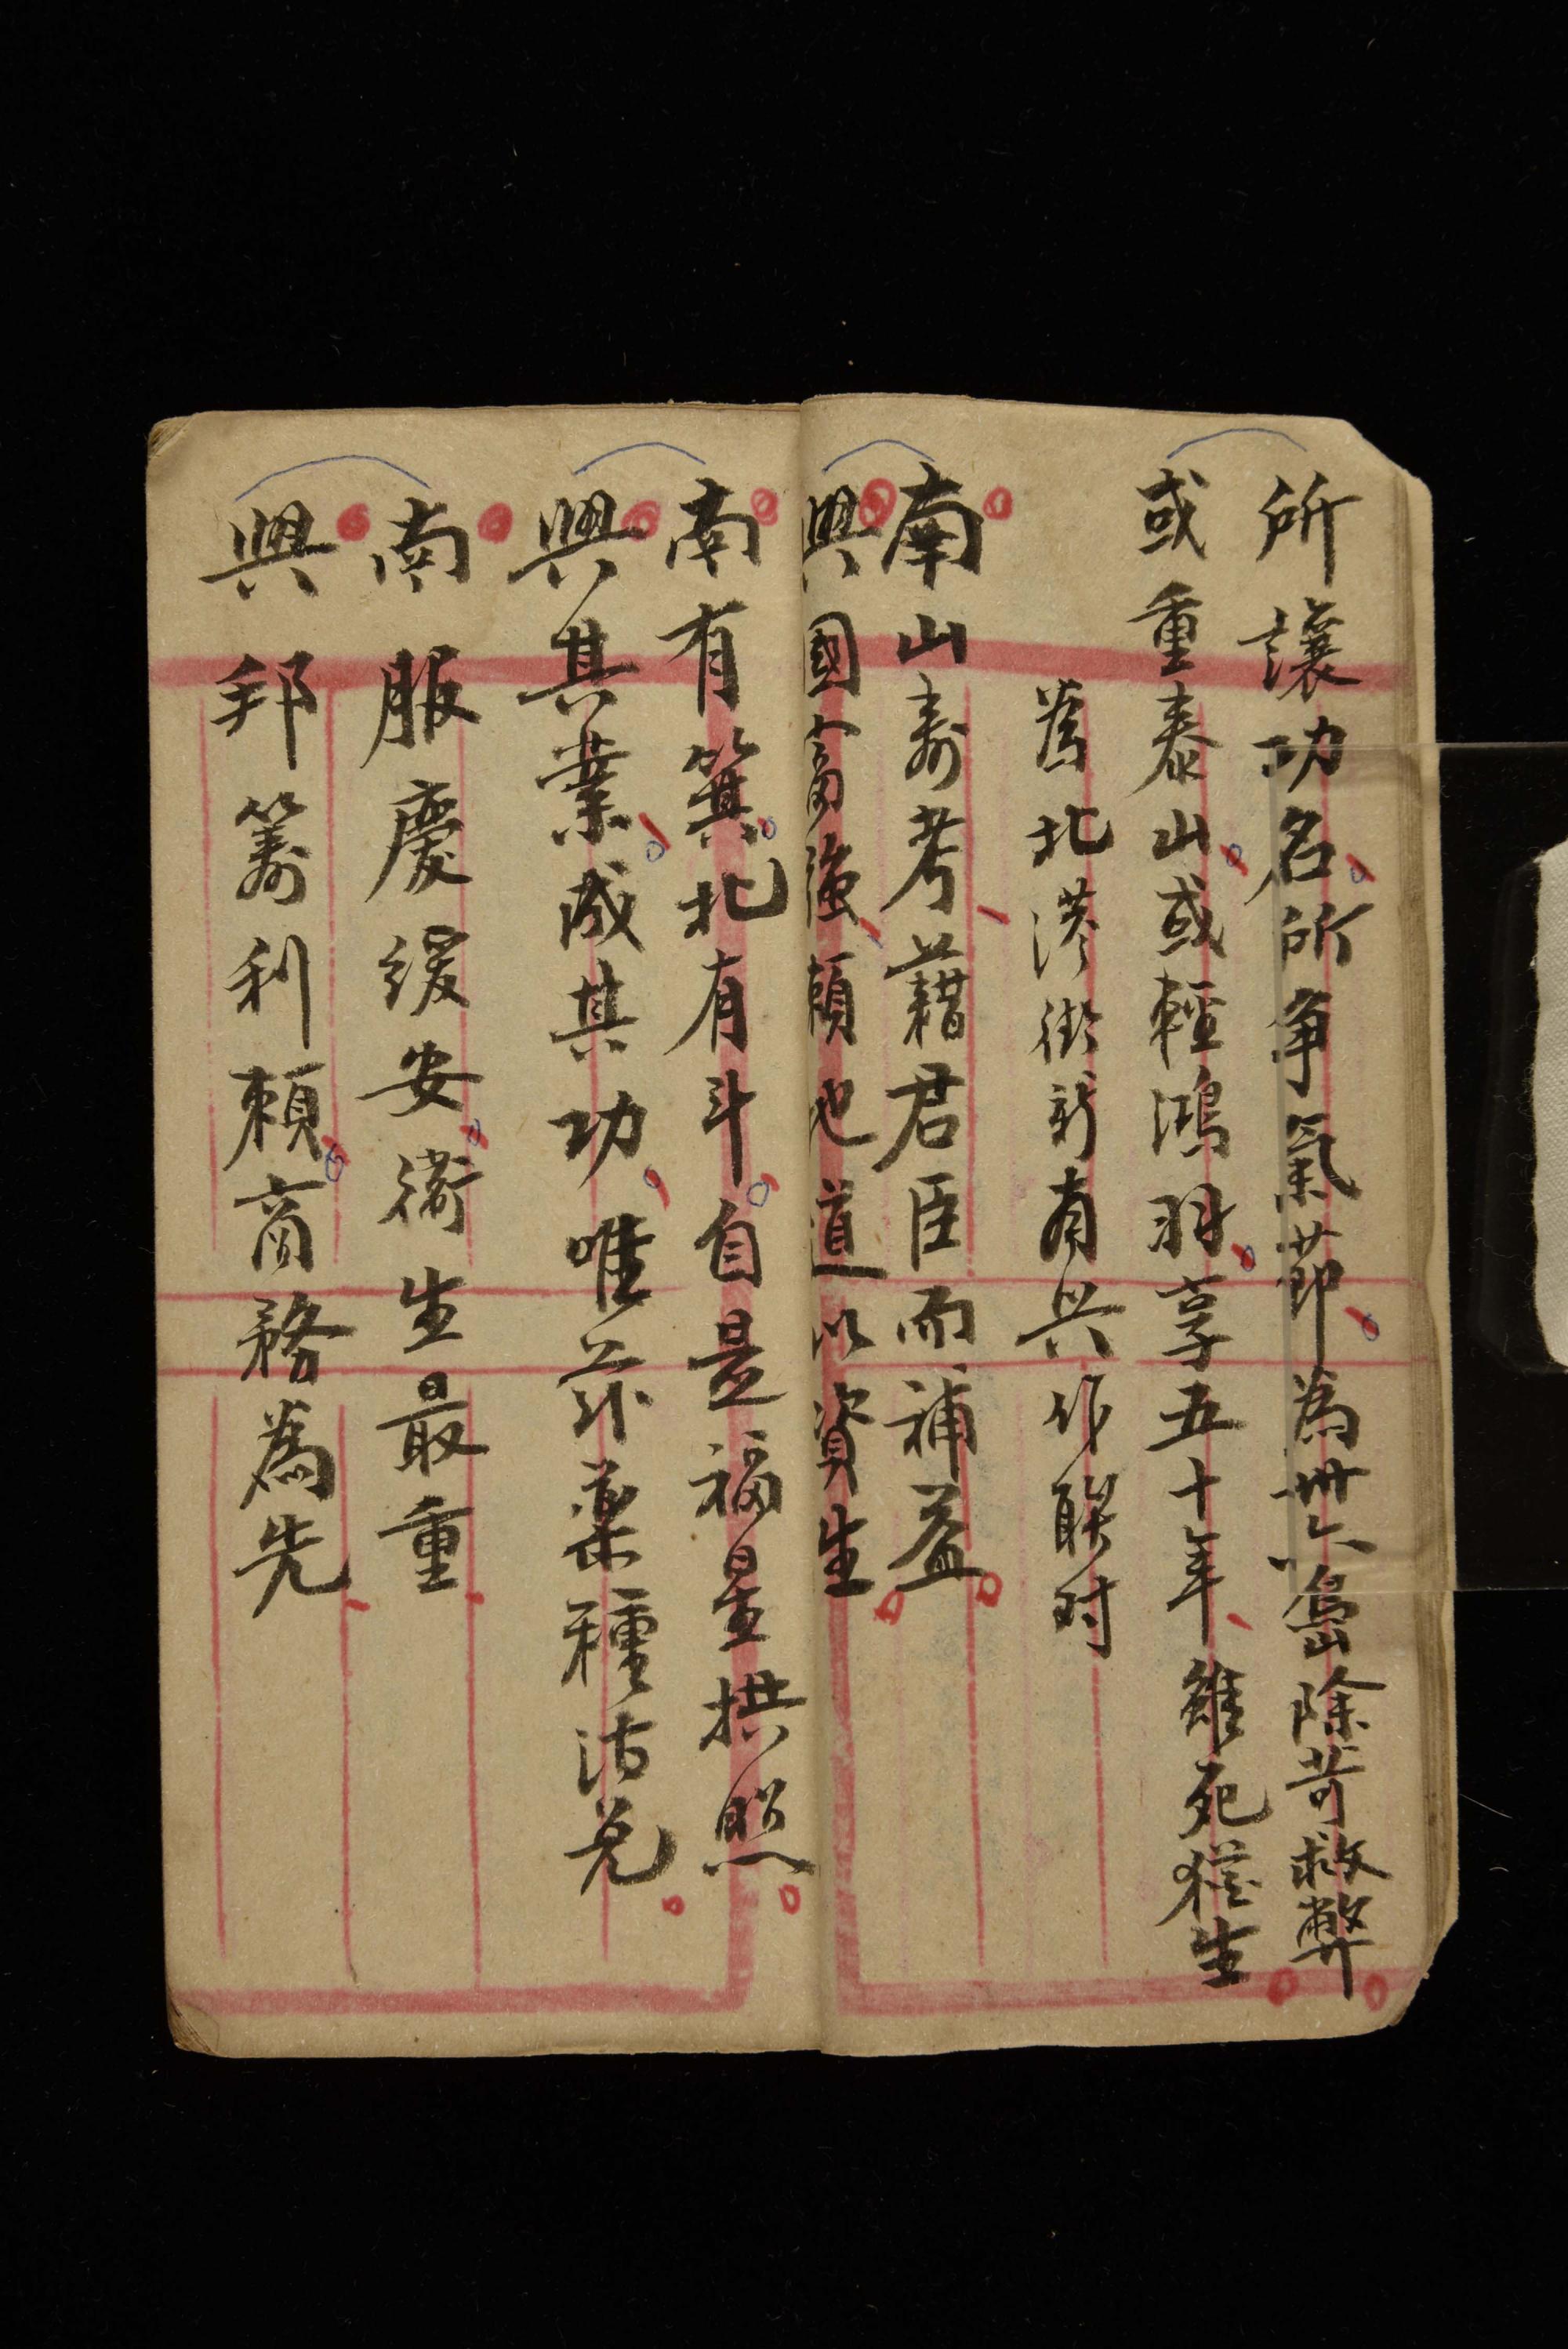 所讓功名所爭氣節為卅六島除苛救弊
或重泰山或輕鴻羽享五十年雖死猶生
為北港街新南興作聯對
南山壽考藉君臣而補益
興國富強賴地道以資生
南有箕北有斗自是福星拱照
興其業成其功唯茲藥種沽兌
南服慶綏安衛生最重
興邦籌利賴商務為先